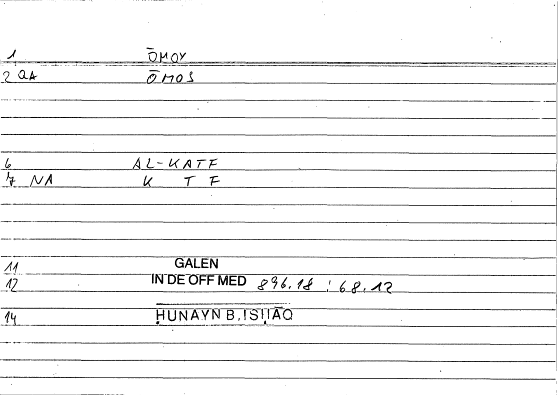 1 ŌMOY
2 QA ŌMOS
6 AL-KATF
7 NA K T F
11 GALEN
12 IN DE OFF MED 896.18 : 68.12
14 ḤUNAYN B. ISḤĀQ